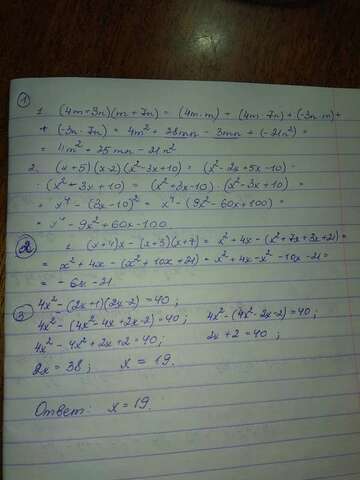 ①
1. (4m-3n)(m+7n) = (4m·m) + (4m·7n)+(-3n·m)+
+ (-3n·7n) = 4m²+28mn - 3mn + (-21n²) =
= 4m²+25mn - 21n²
2. (x+5)(x-2)(x²-3x+10) = (x²-2x+5x-10)·
·(x²-3x+10) = (x²+3x-10)·(x²-3x+10) =
= x⁴ - (3x-10)² = x⁴-(9x²-60x+100) =
= x⁴ - 9x²+60x-100.
② (x+4)x-(x+3)(x+7) = x²+4x-(x²+7x+3x+21)=
= x²+4x-(x²+10x+21) = x²+4x-x²-10x-21=
= -6x-21
③ 4x²-(2x+1)(2x-2)=40;
4x²-(4x²-4x+2x-2)=40; 4x²-(4x²-2x-2)=40;
4x²-4x²+2x+2=40; 2x+2=40;
2x=38; x=19.
Ответ: x=19.